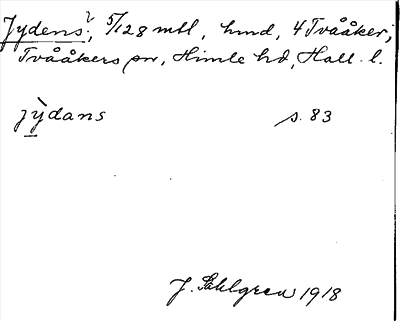 Jydens?, 5/128 mtl, hmd, 4 Tvååker,
Tvååkers sn, Himle hd, Hall. l.
jy̆dans s. 83
J. Sahlgren 1918